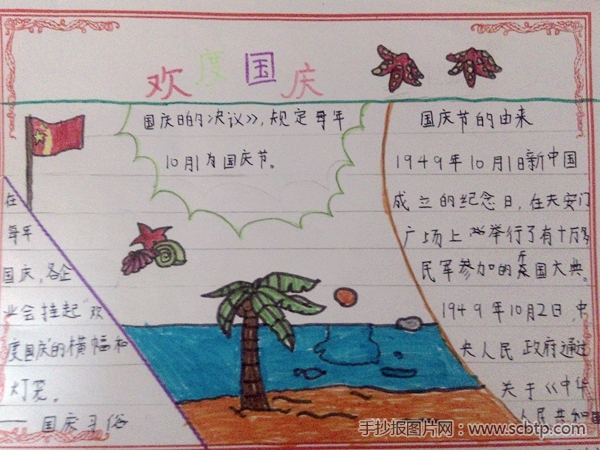 欢度国庆
国庆日的决议》,规定每年
10月1为国庆节。
国庆节的由来
1949年10月1日新中国
成立的纪念日,在天安门
广场上举行了有十万
民军参加的国大典。
1949年10月2日,中
央人民政府通过
关于《中华
人民共和国
在
每年
国庆,各企
业会挂起"欢
度国庆"的横幅和
灯笼。
——国庆习俗
手抄报图片网:www.scbtp.com